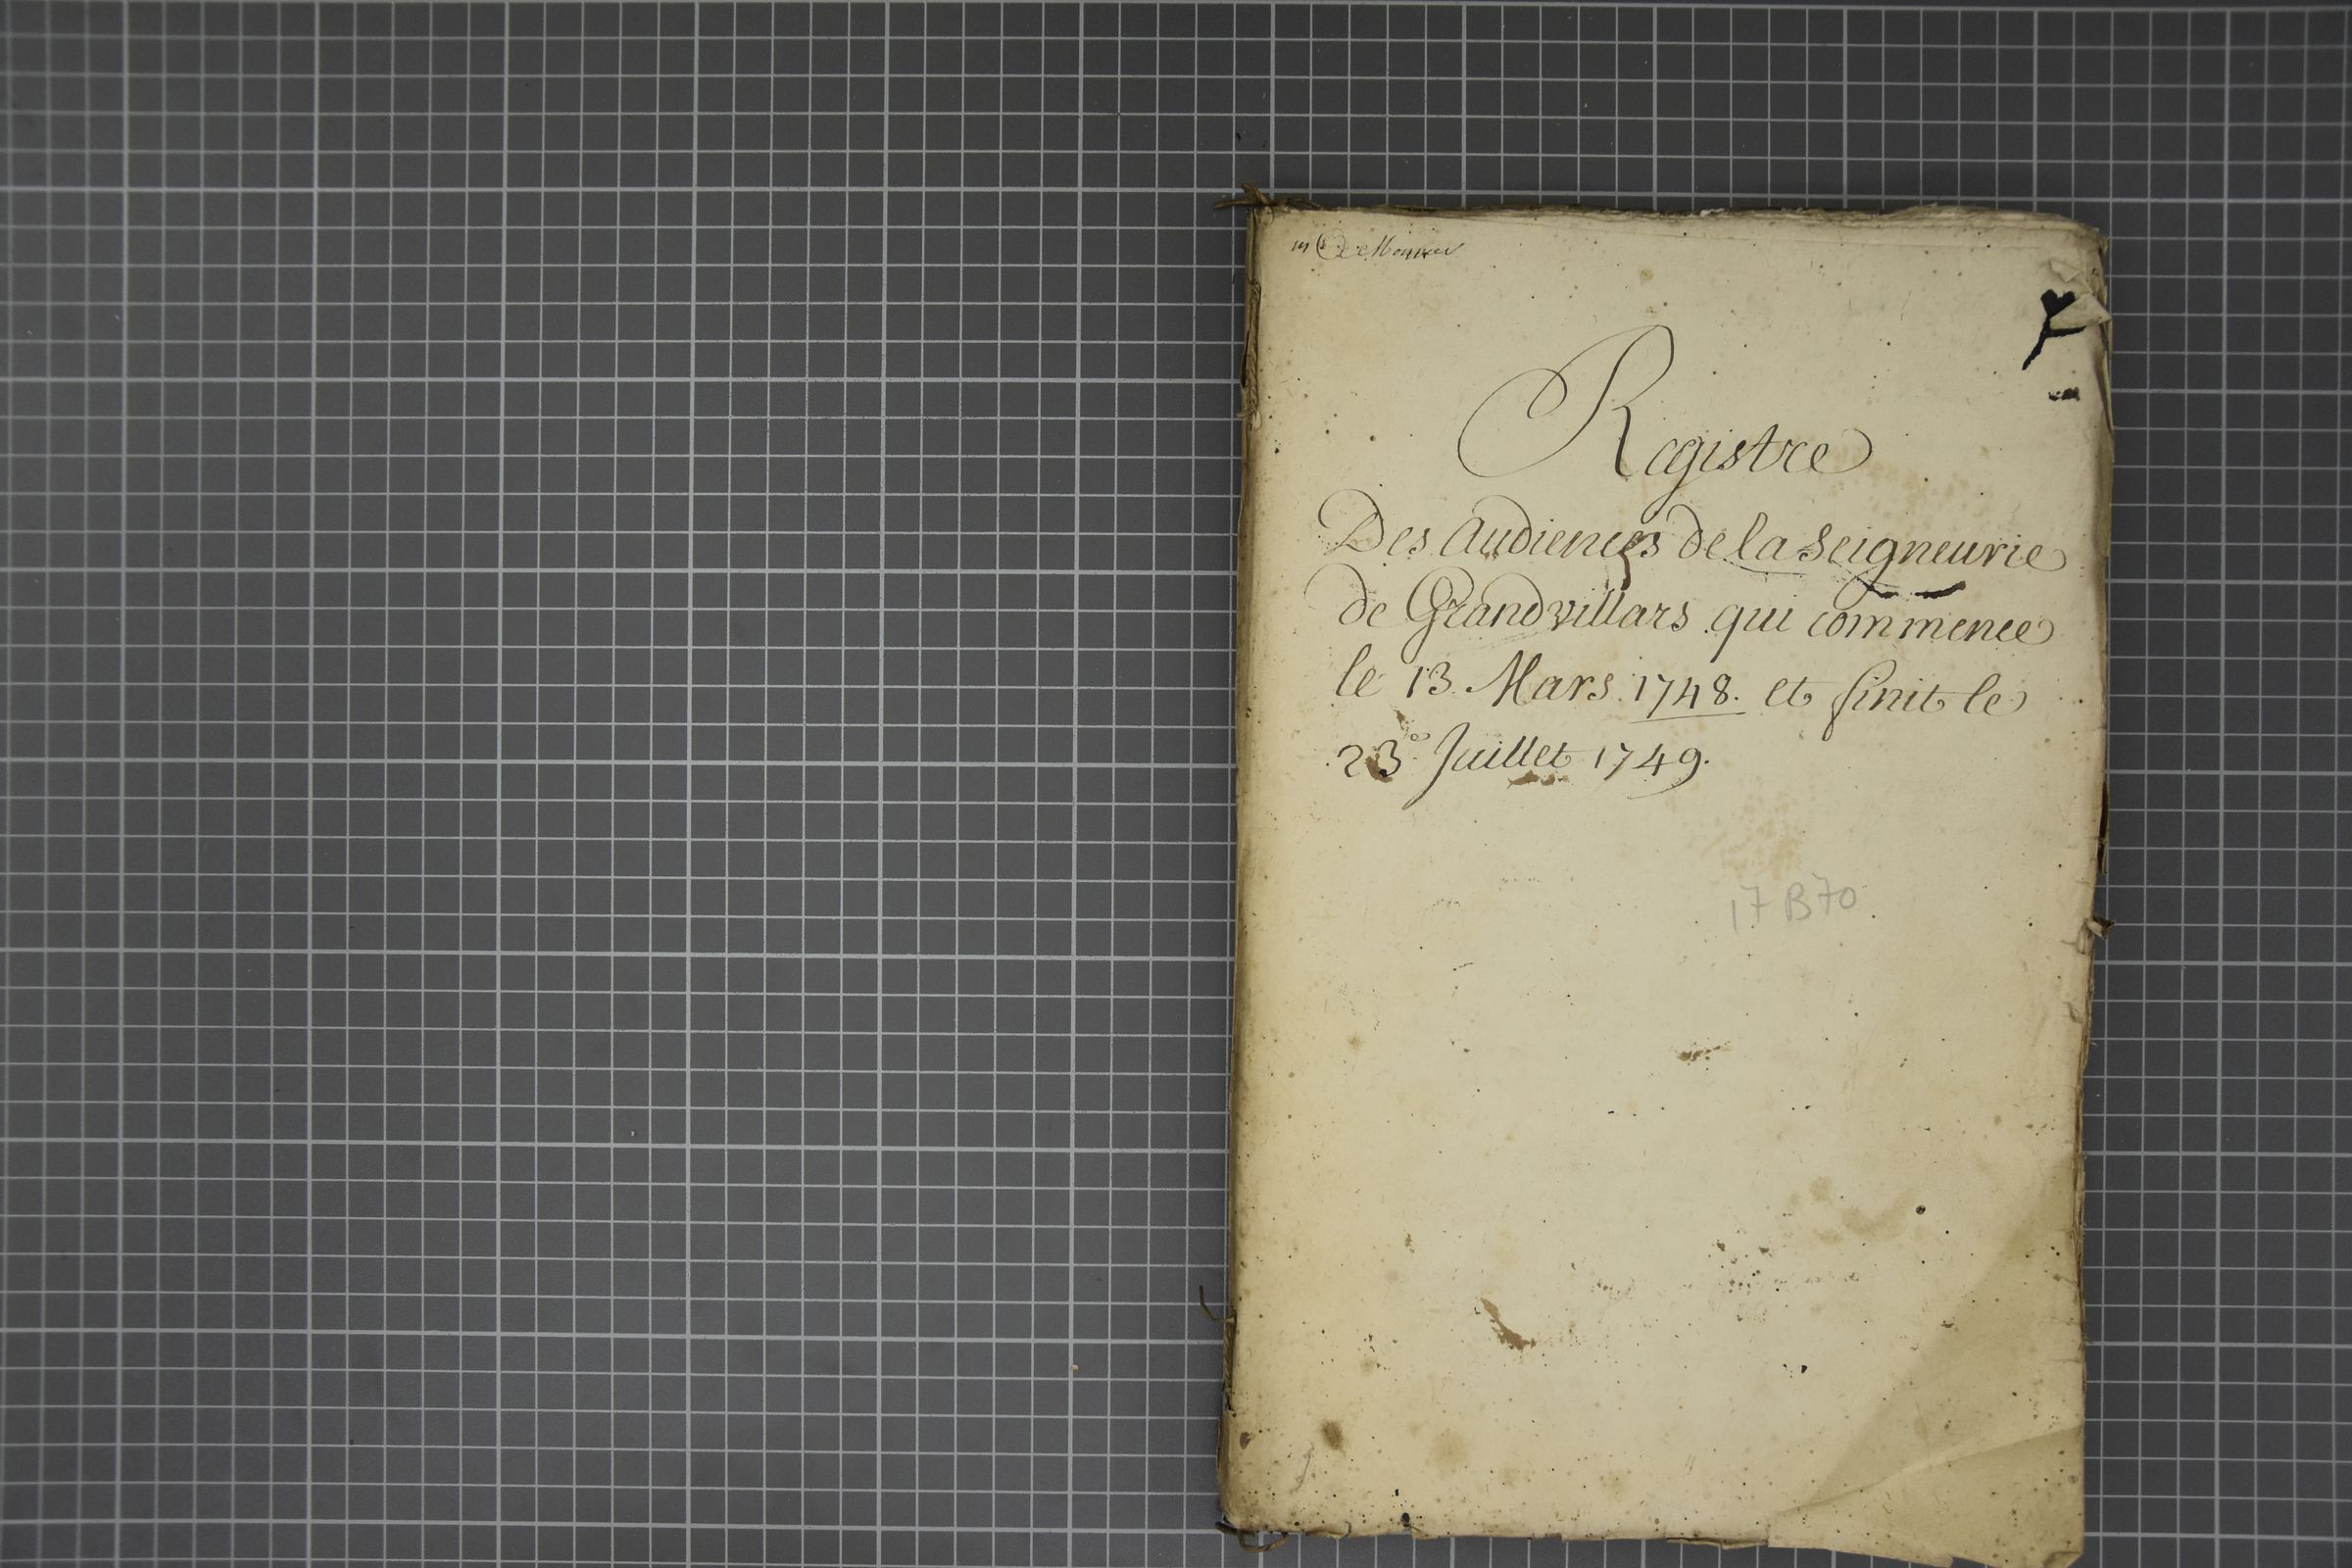 Registre
Des Audiences de la Seigneurie
de Grandvillars qui commence
le 13. Mars 1748. et finit le
23e Juillet 1749.
17 B 70